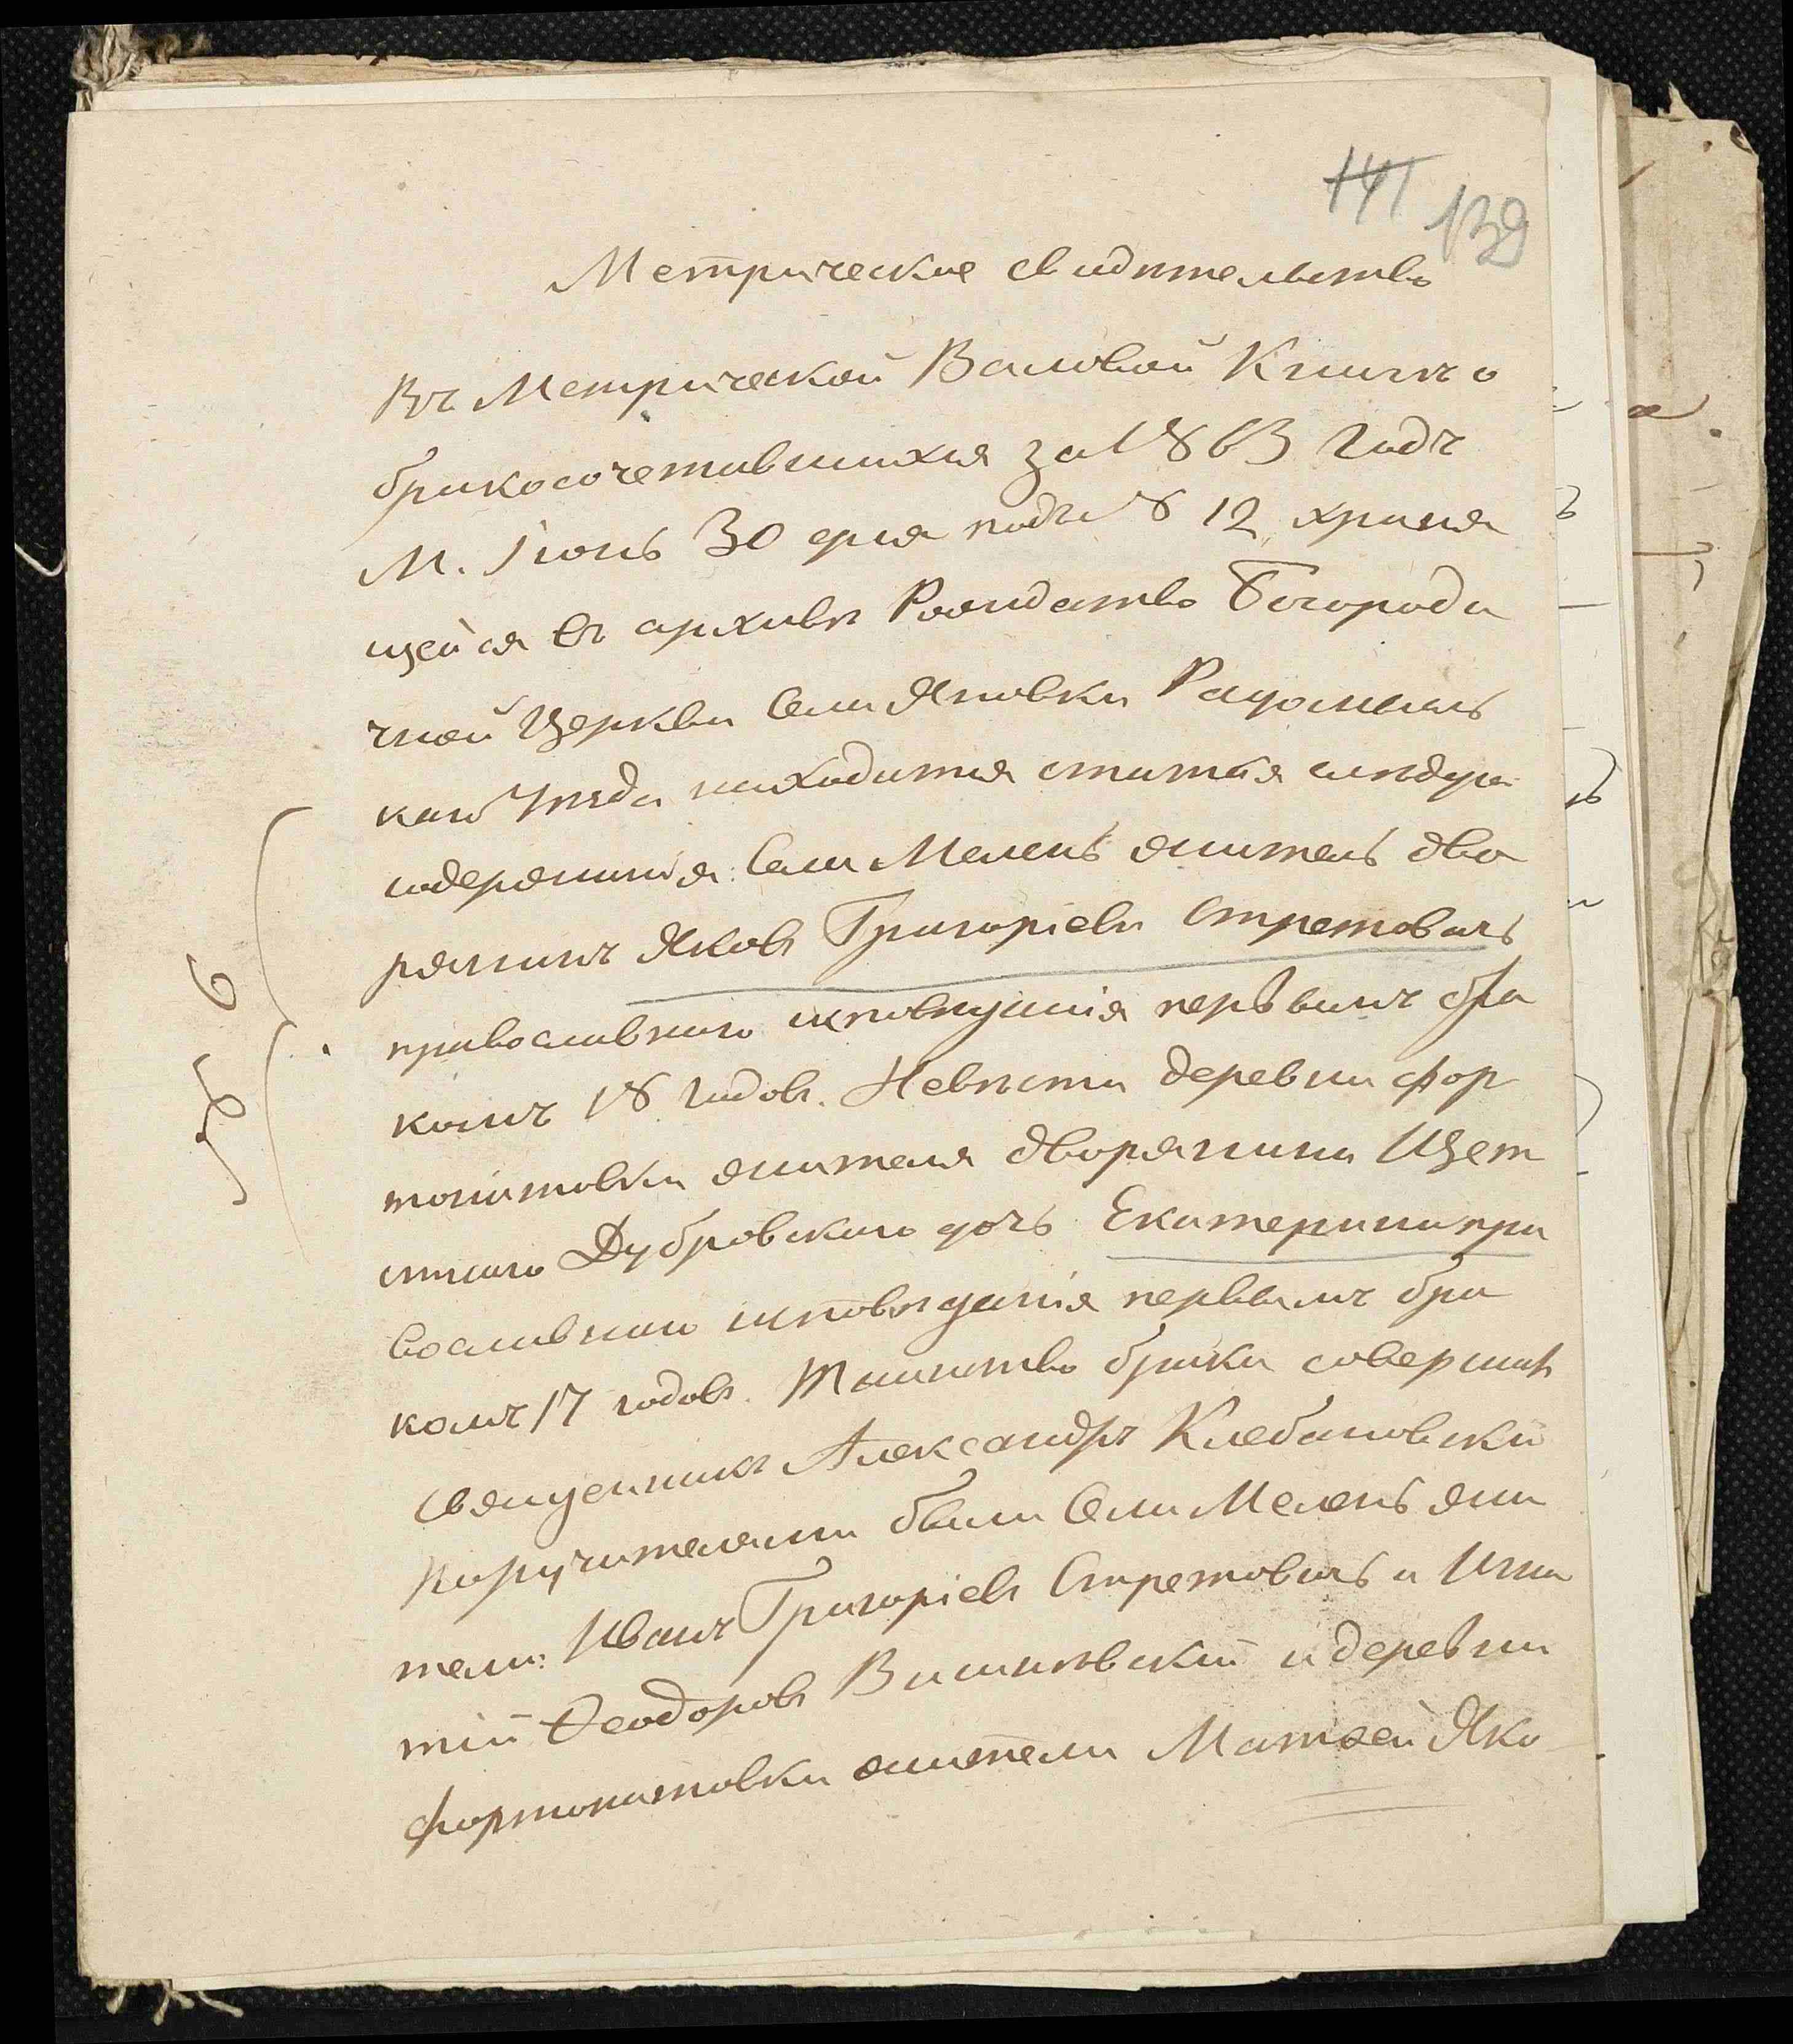 141 139
Метрическое свидѣтельство
Въ Метрической Валовой Книгѣ о
бракосочетавшихся за 1863 годъ
М. Іюнь 30 дня подъ № 12, храня
щейся въ архивѣ Рождество Богороди
чной Церкви села Яновки Радомысль
каго Уѣзда находится статья слѣдую
содержанія: Села Мелень житель дво
рянинъ Яковъ Григоріевъ Стретовичъ
православнаго исповѣданія первымъ бра
комъ 18 годовъ. Невѣста деревни Фор
тонатовки жителя дворянина
Дубровскаго дочь Екатерина пра
вославнаго исповѣданія первымъ бра
комъ 17 годовъ. Таинство брака совершилъ
священникъ Александръ Клебановскій
поручителями были села Мелень жи
тели: Иванъ Григоріевъ Стретовичъ и Игна
тій Ѳеодоровъ Вишневскій и деревни
Фортонатовки жители Матѳей Яко